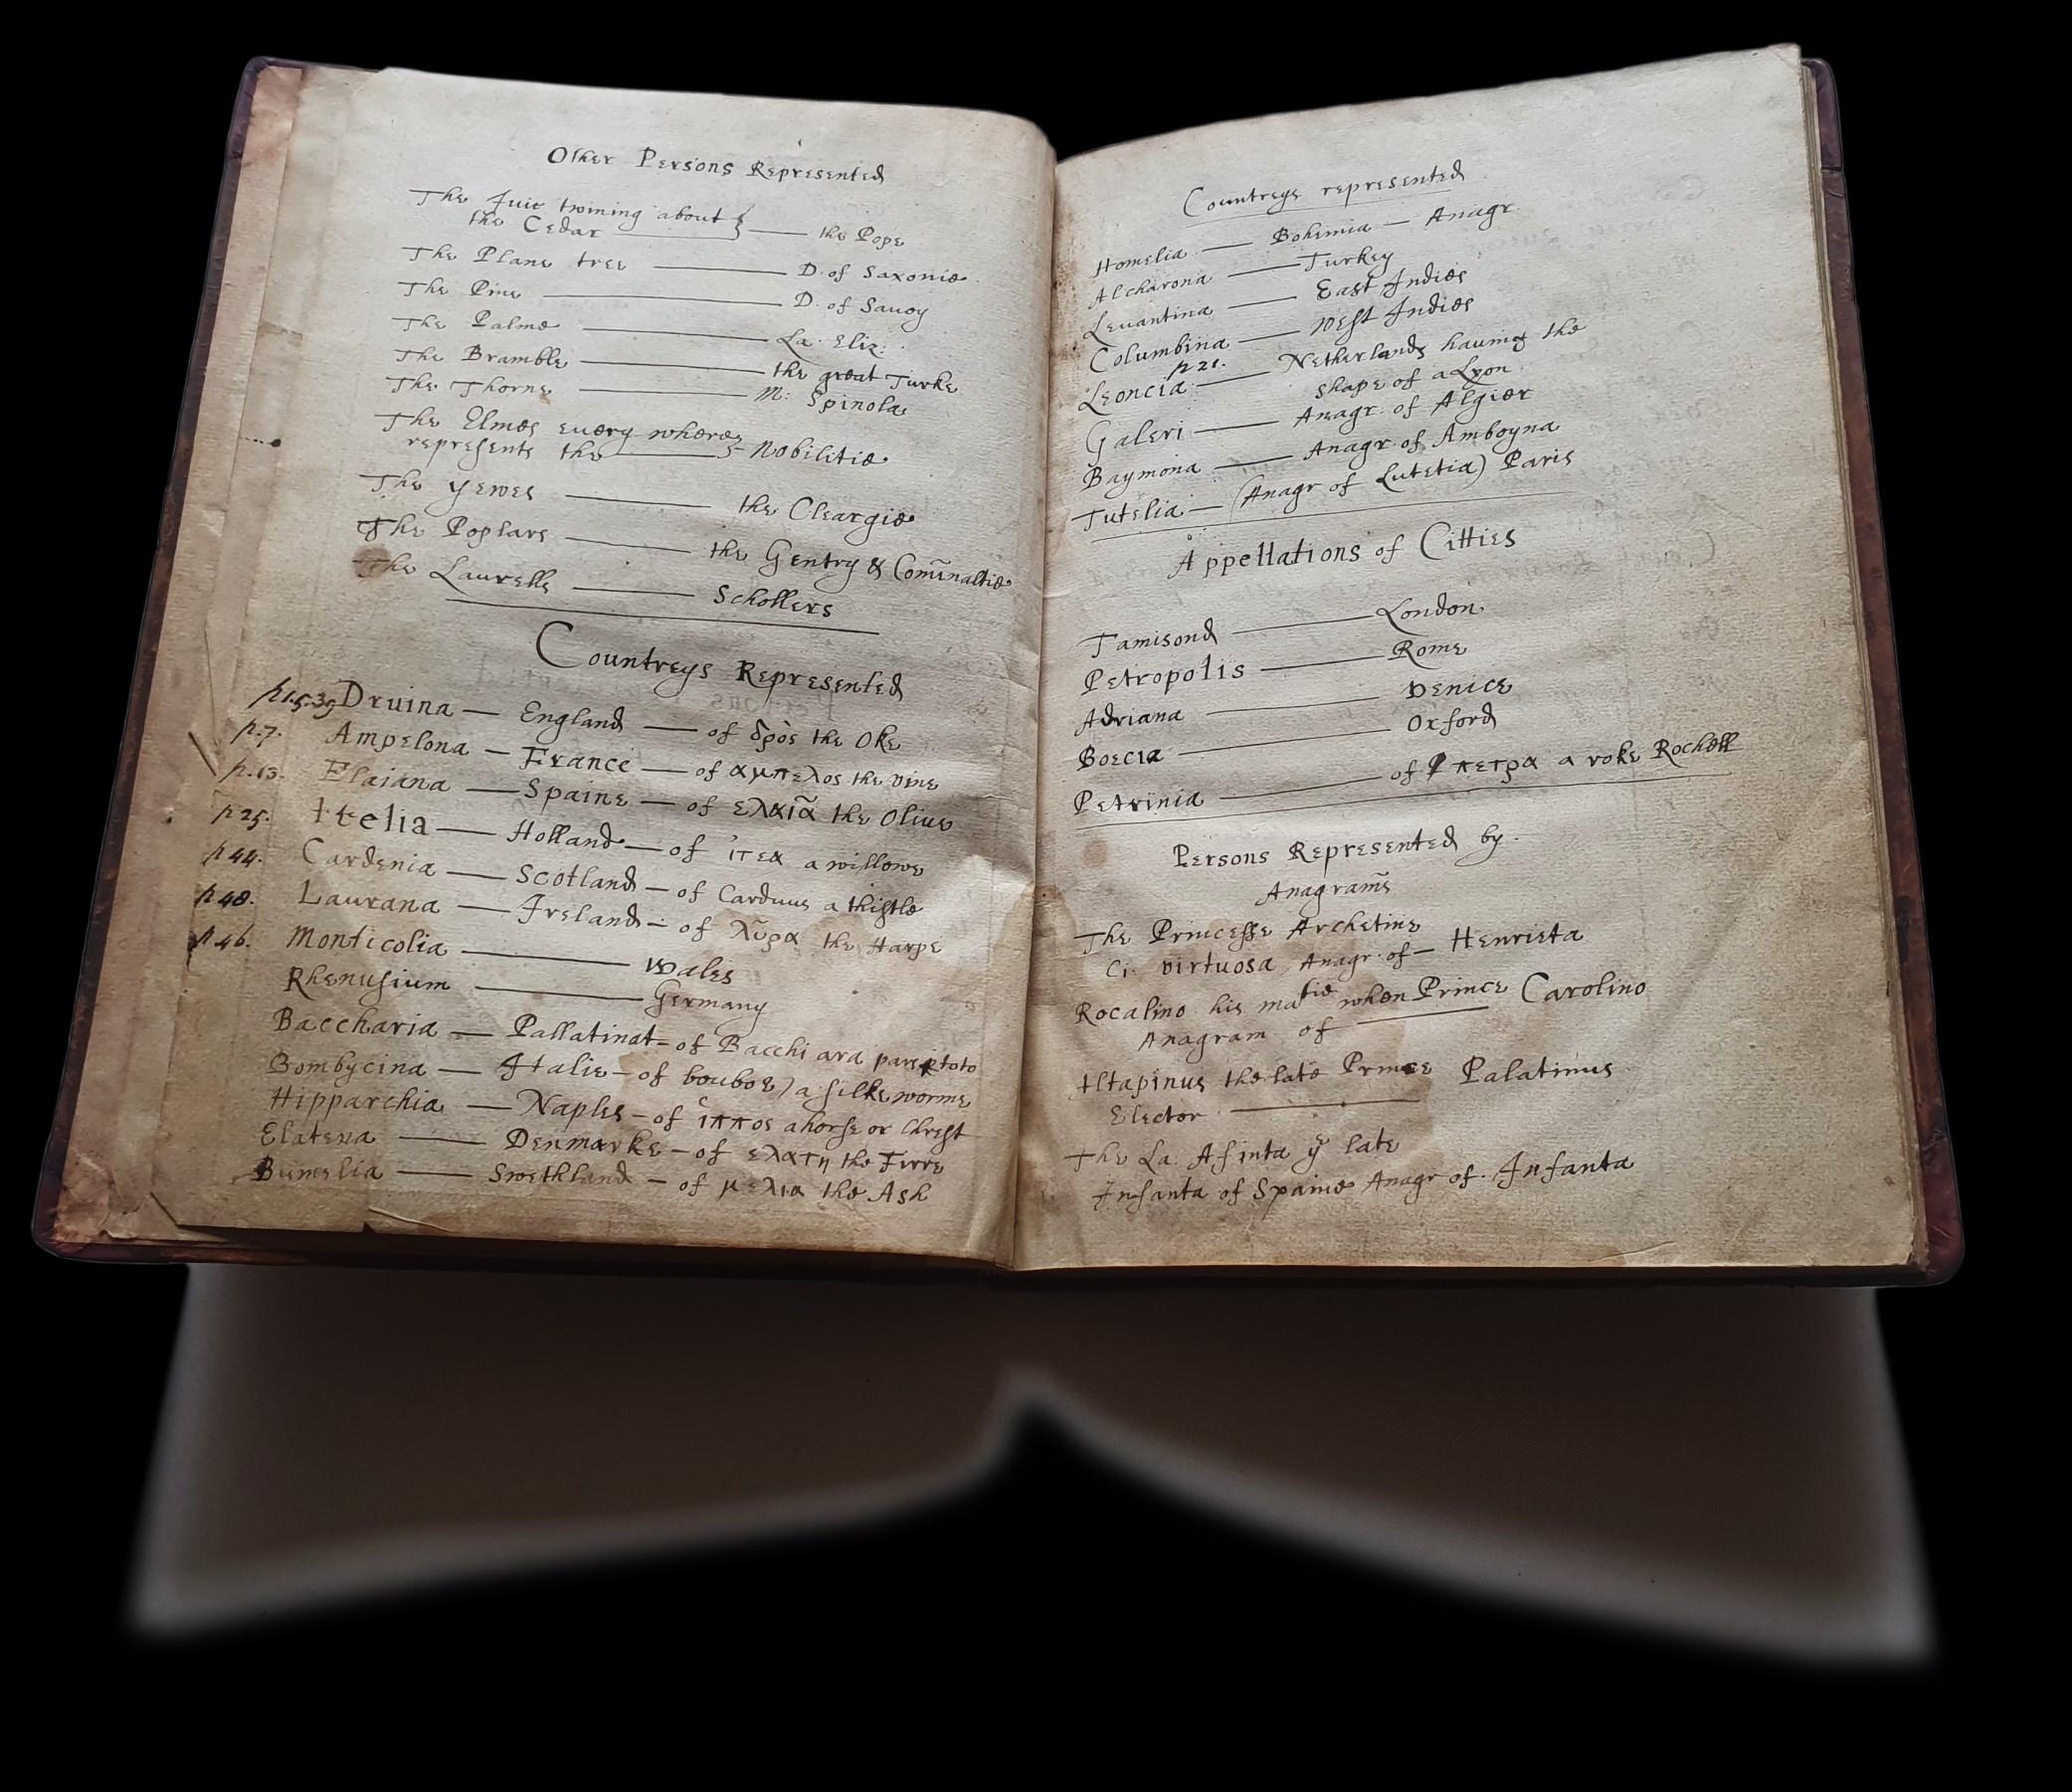 Other Persons Represented
The Iuie twining about
the Cedar — the Pope
The Plane tree — D. of Saxonie
The Pine — D. of Sauoy
The Palme — La. Eliz:
The Bramble — the great Turke
The Thorne — M: Spinola
The Elmes euery where
represents the — Nobilitie
The Yewes — the Cleargie
The Poplars — the Gentry & Com̃naltie
The Laurells — Schollers
Countreys Represented
Druina — England — of δρὸς the Oke
p.7. Ampelona — France — of αμπελος the vine
p.13. Elaiana — Spaine — of ελαιᾶ the Oliue
p 25. Itelia — Holland — of ἰτεα a willowe
p 44. Cardenia — Scotland — of Carduus a thistle
p 48. Laurana — Ireland — of λῦρα the Harpe
p 46. Monticolia — Wales
Rhenusium — Germany
Baccharia — Pallatinat — of Bacchi ara toto
Bombycina — Italie — of a silke worme
Hipparchia — Naples — of ἱππος a horse or
Elatena — Denmarke — of ελατη the Firre
Bumelia — Swethland — of μελια the Ash
Countreys represented
Homelia — Bohemia — Anagr.
Alcharona — Turkey
Leuantina — East Indies
Columbina — West Indies
p 21.
Leoncia — Netherlands hauing the
shape of a Lyon
Galeri — Anagr. of Algier
Baymona — Anagr. of Amboyna
Tutelia — (Anagr of Lutetia) Paris
Appellations of Citties
Tamisond — London
Petropolis — Rome
Adriana — Venice
Boecia — Oxford
Petrinia — of πετρα a roke Rochell
Persons Represented by
Anagram̃s
The Princesse Archetine
Ci. virtuosa Anagr. of — Henrieta
Rocalino his ma^tie when Prince Carolino
Anagram of —
Iltapinus the late Prince Palatinus
Elector —
The La. Afinta yͤ late
Infanta of Spaine Anagr of. Infanta